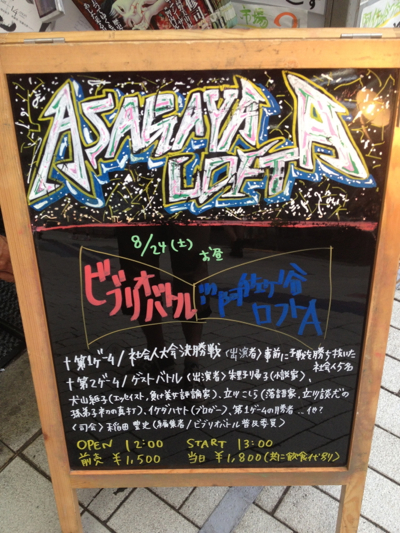 ASAGAYA
LOFT A
8/24(土)
お昼
ビブリオバトル
in 阿佐ヶ谷
ロフトA
†第1ゲーム/社会人大会決勝戦〈出演者〉事前に予戦を勝ち抜いた
社会人5名
†第2ゲーム/ゲストバトル〈出演者〉朱野帰子(小説家)、
犬山紙子(エッセイスト、負け美女評論家)、立川こしら(落語家、立川談志の
孫弟子初の真打)、イケダハヤト(ブロガー)、第1ゲームの勝者…他?
〈司会〉和田豊史(編集者/ビブリオバトル普及委員)
OPEN 12:00 START 13:00
前売 ¥1,500 当日 ¥1,800(共に飲食代別)